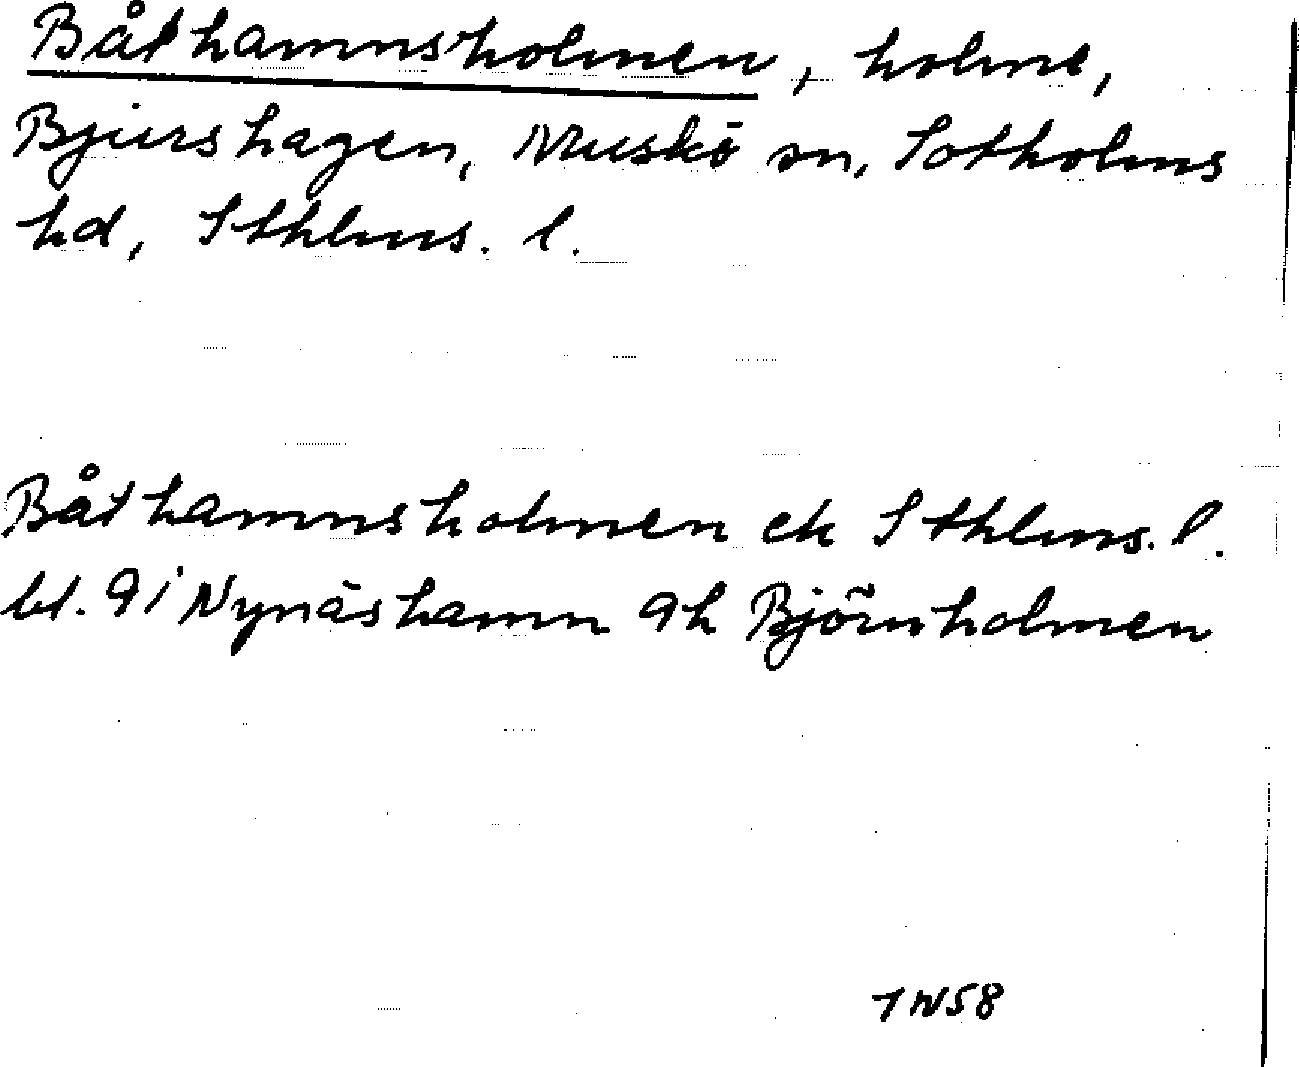 Båthamnsholmen, holme,
Bjurshagen, Muskö sn, Sotholms
hd, Sthlms. l.
Båthamnsholmen ek Sthlms. l.
bl. 91 Nynäshamn 9h Björnholmen
TW58